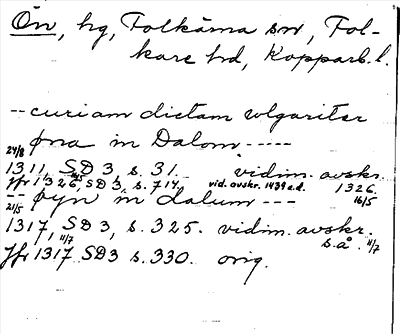 Ön, hg, Folkärna sn, Fol-
kare hd, Kopparb. l.
-- curiam dictam wlgariter
øna in Dalom -----
24/8
1311, SD 3, s. 31. vidim. avskr.
16/5
jfr 1326, SD 3, s. 714. vid. avskr. 1439 a.d. 1326 16/5
-- øyn in dalum ---
21/5
1317, SD 3, s. 325. vidim. avskr.
11/7 s.å. 11/7
Jfr 1317 SD3 s. 330. orig.